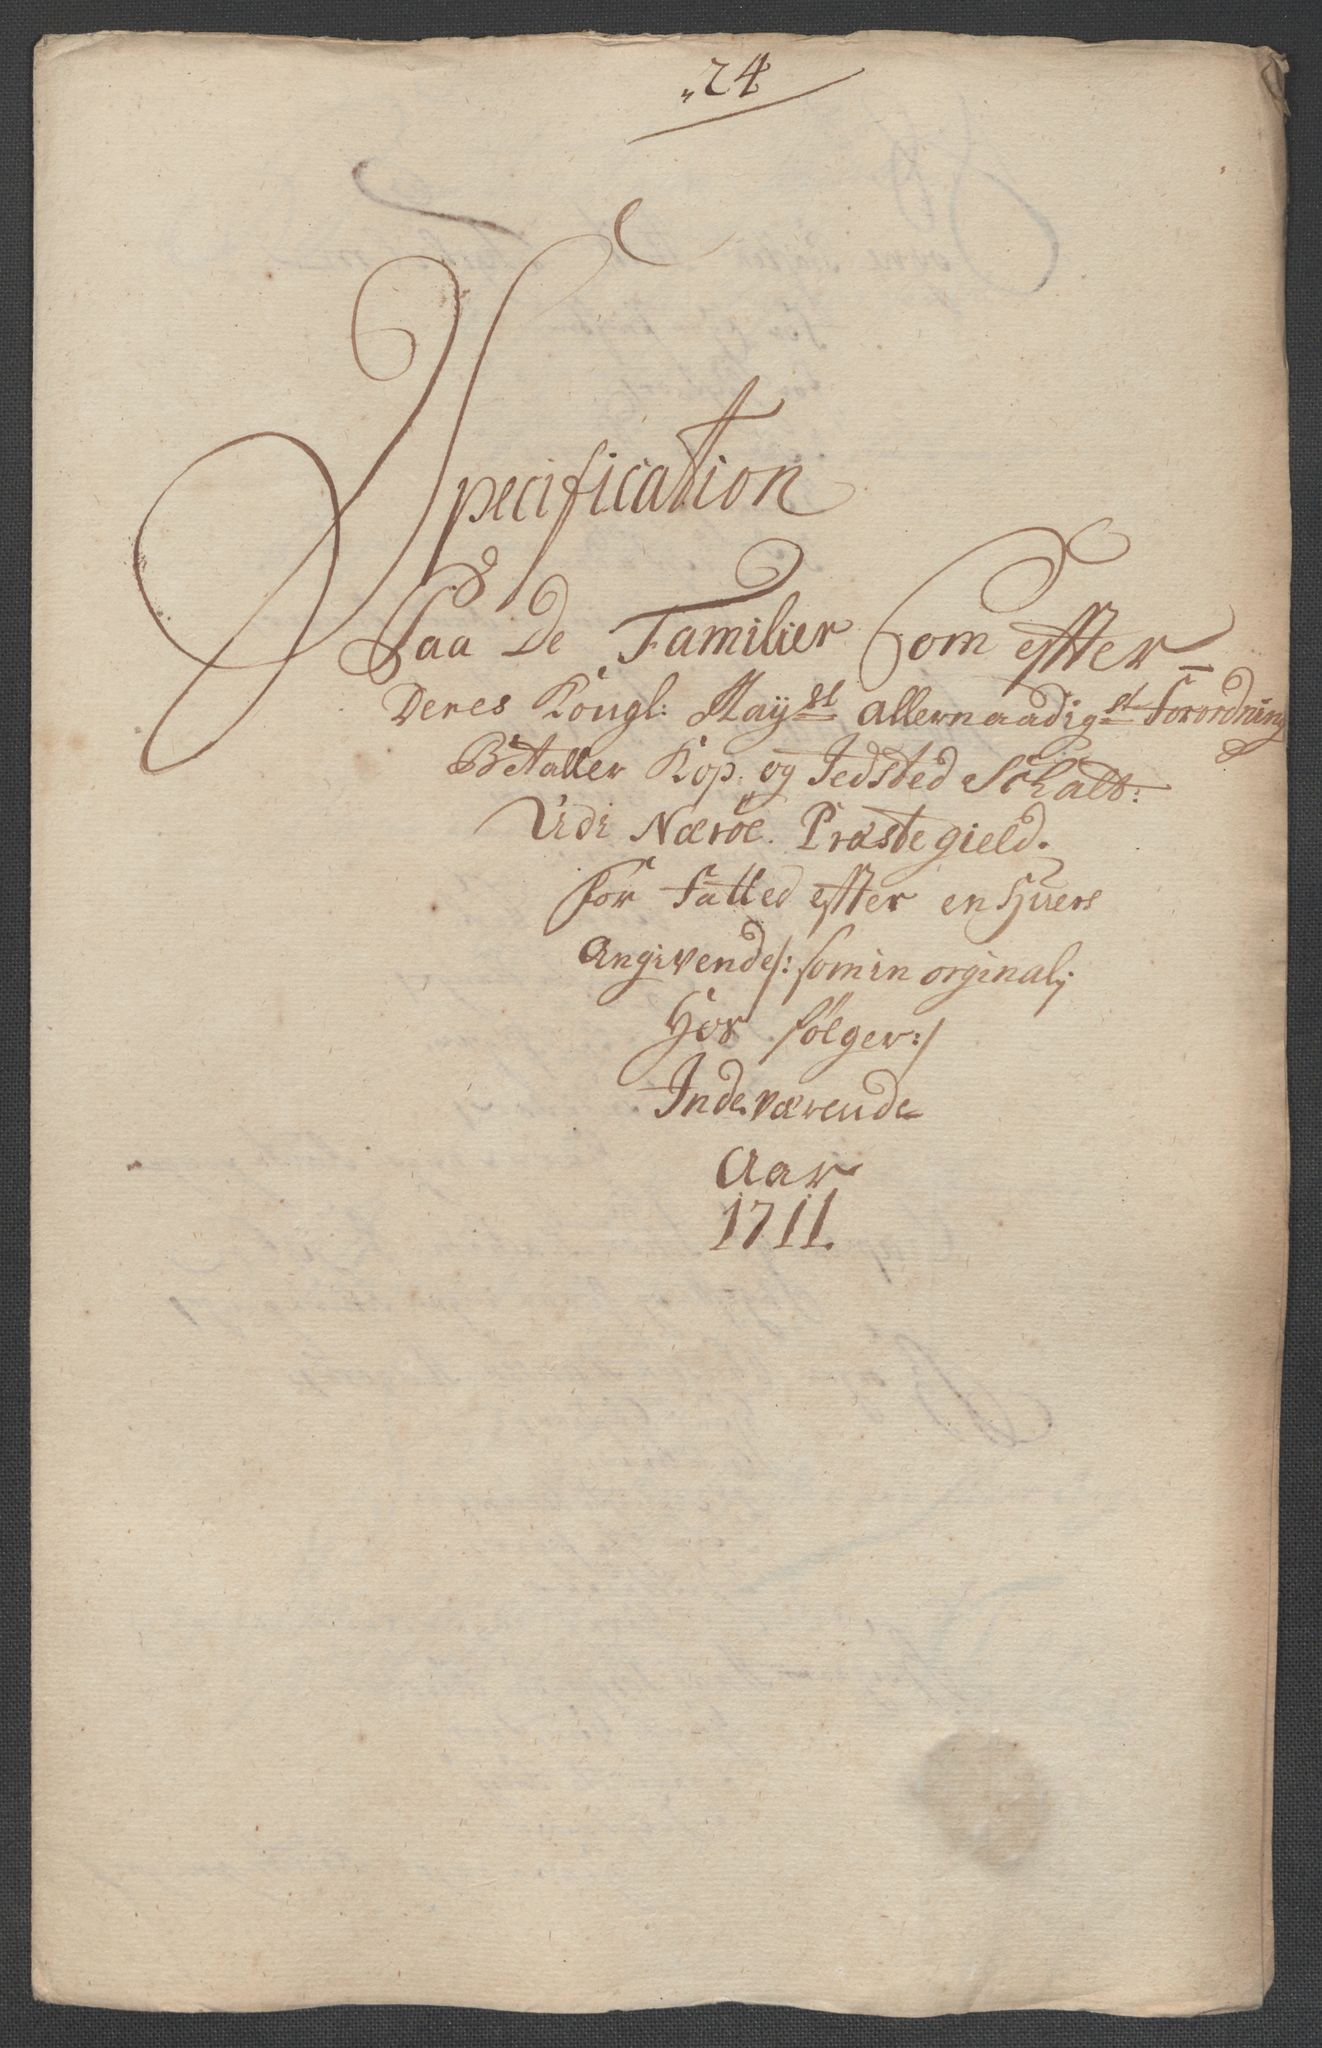 „24
Specification
Paa De Familier Som effter
Deres Kongl: May:st allernaadigst Forordning
Betaller Kop. og Ildsted Schatt:
Udi Nærøe Præstegield.
forfatted effter en Huers
Angivende /: som in orginalj
Hos følger :/
Indeværende
Aar
1711.